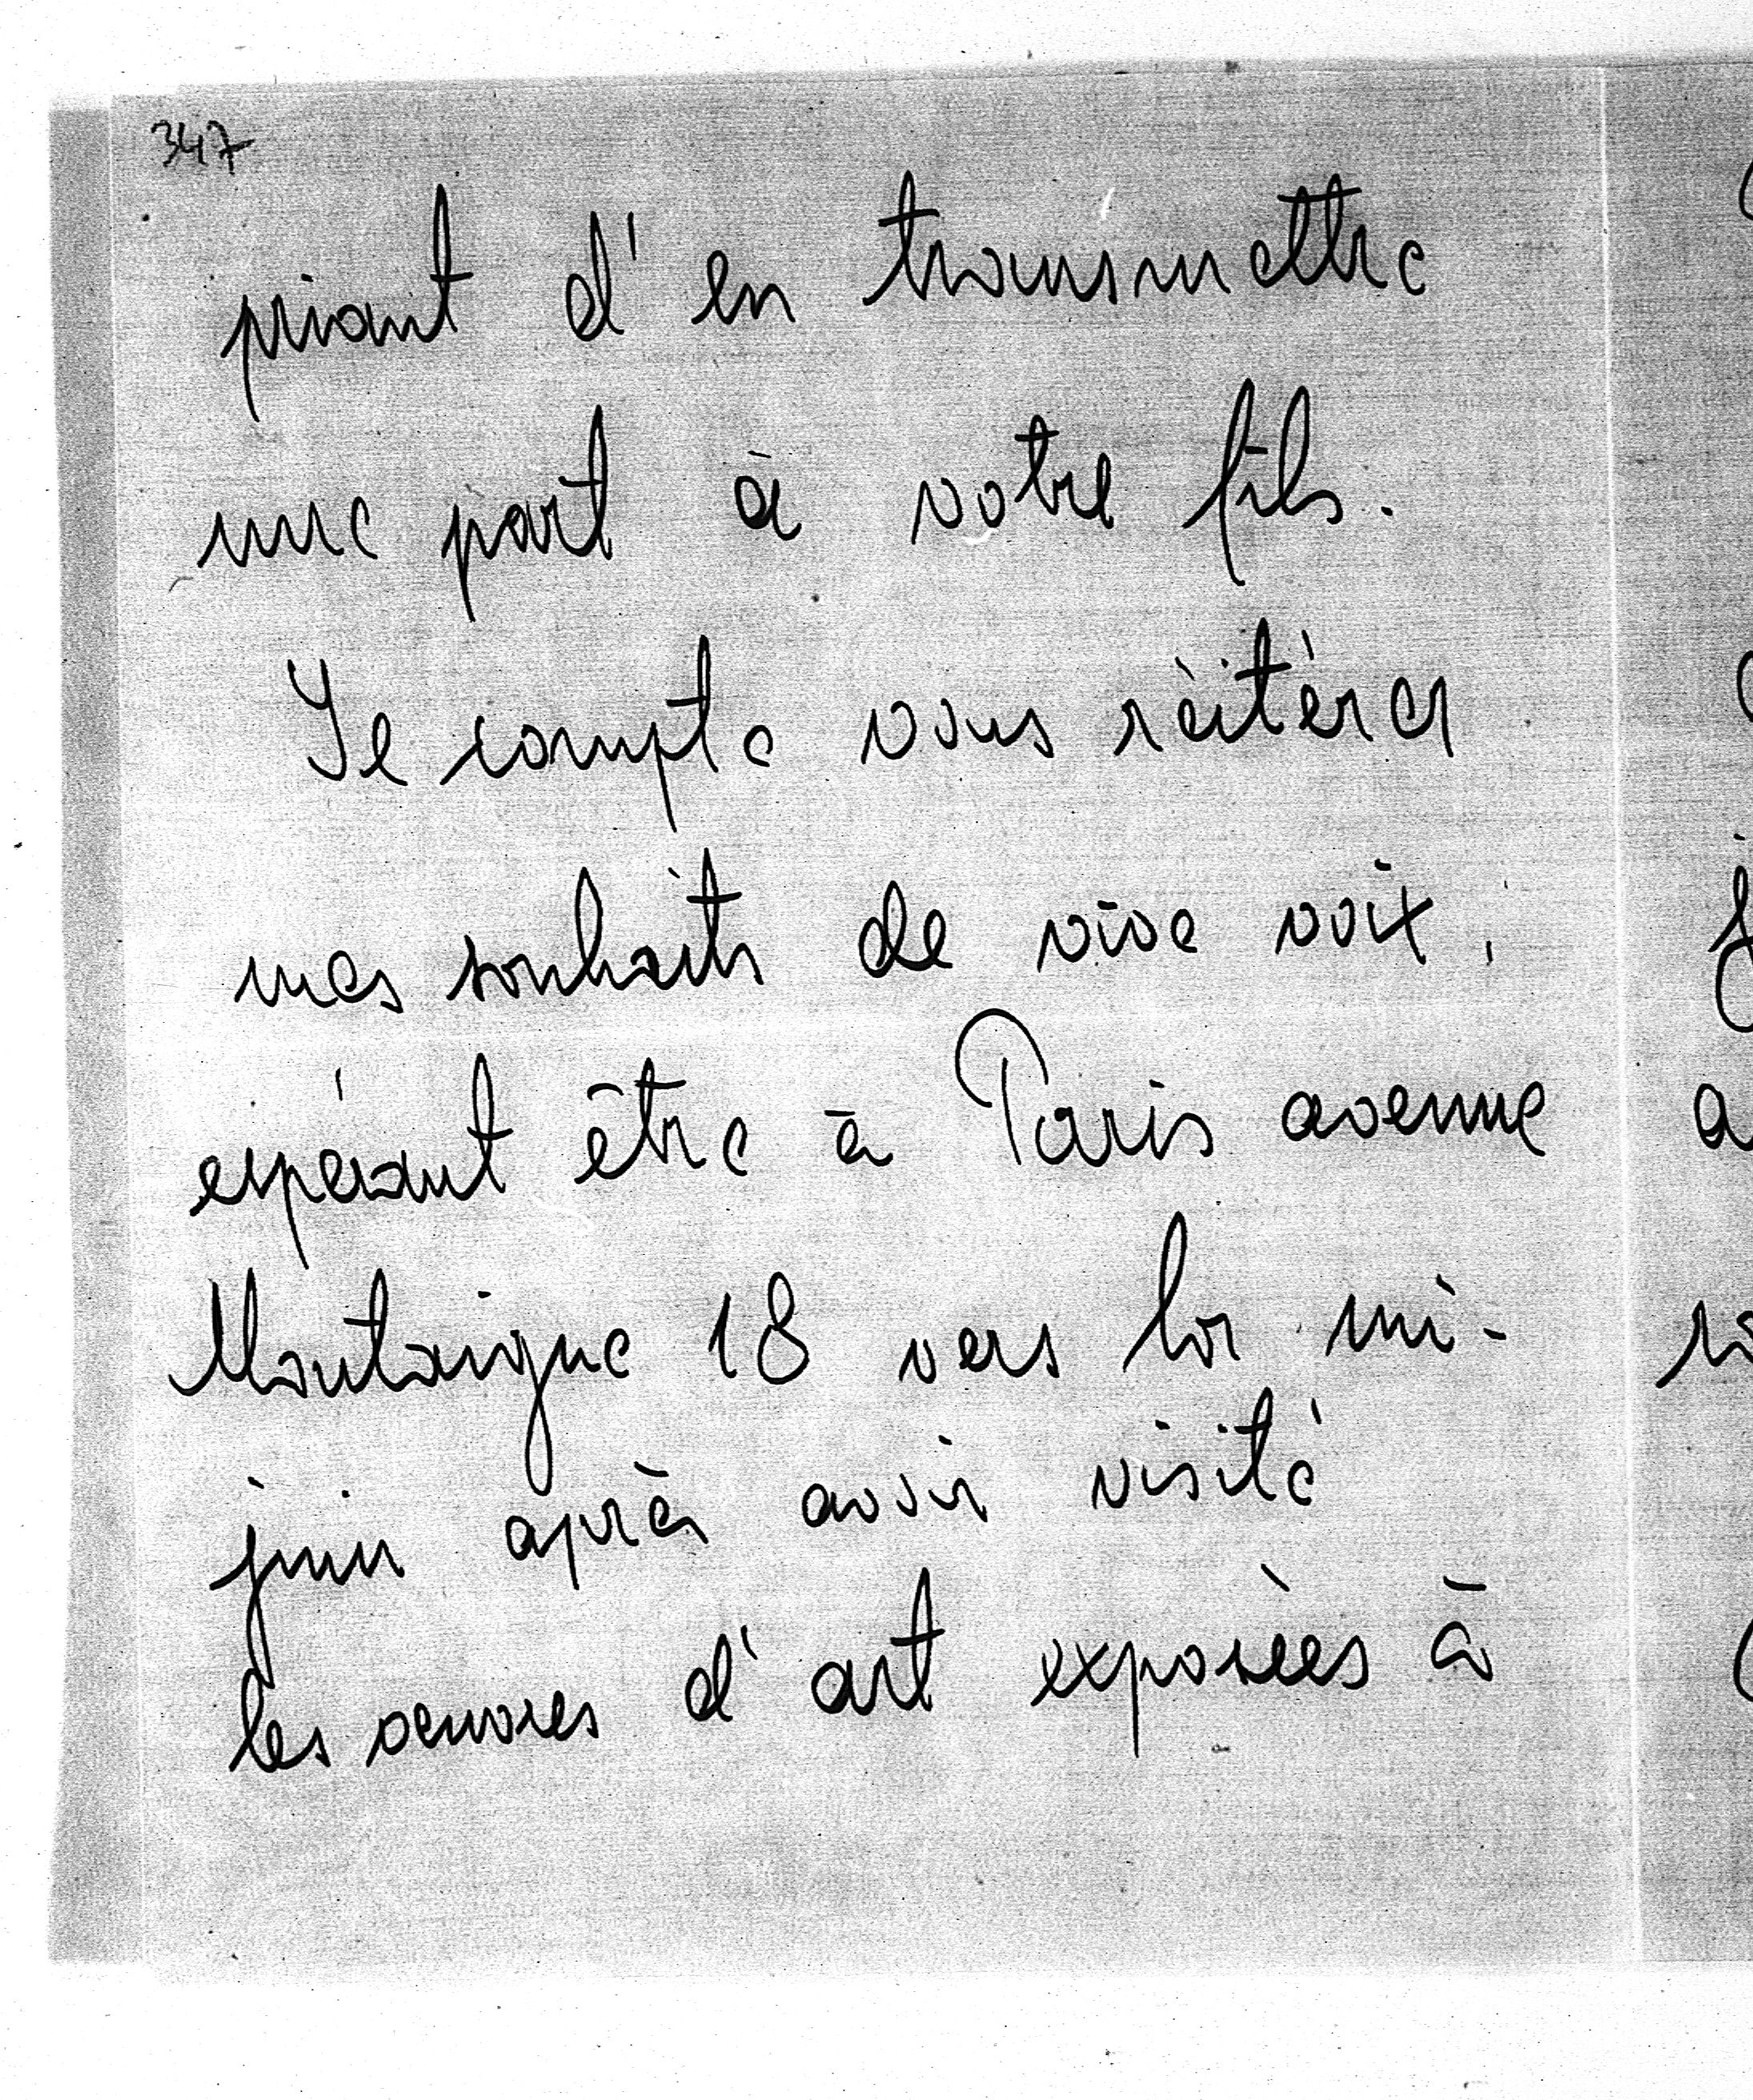 347
priant d'en transmettre
une part à votre fils.
Je compte vous réitérer
mes souhaits de vive voix,
espérant être à Paris avenue
Montaigne 18 vers la mi-
juin après avoir visité
les oeuvres d'art exposées à